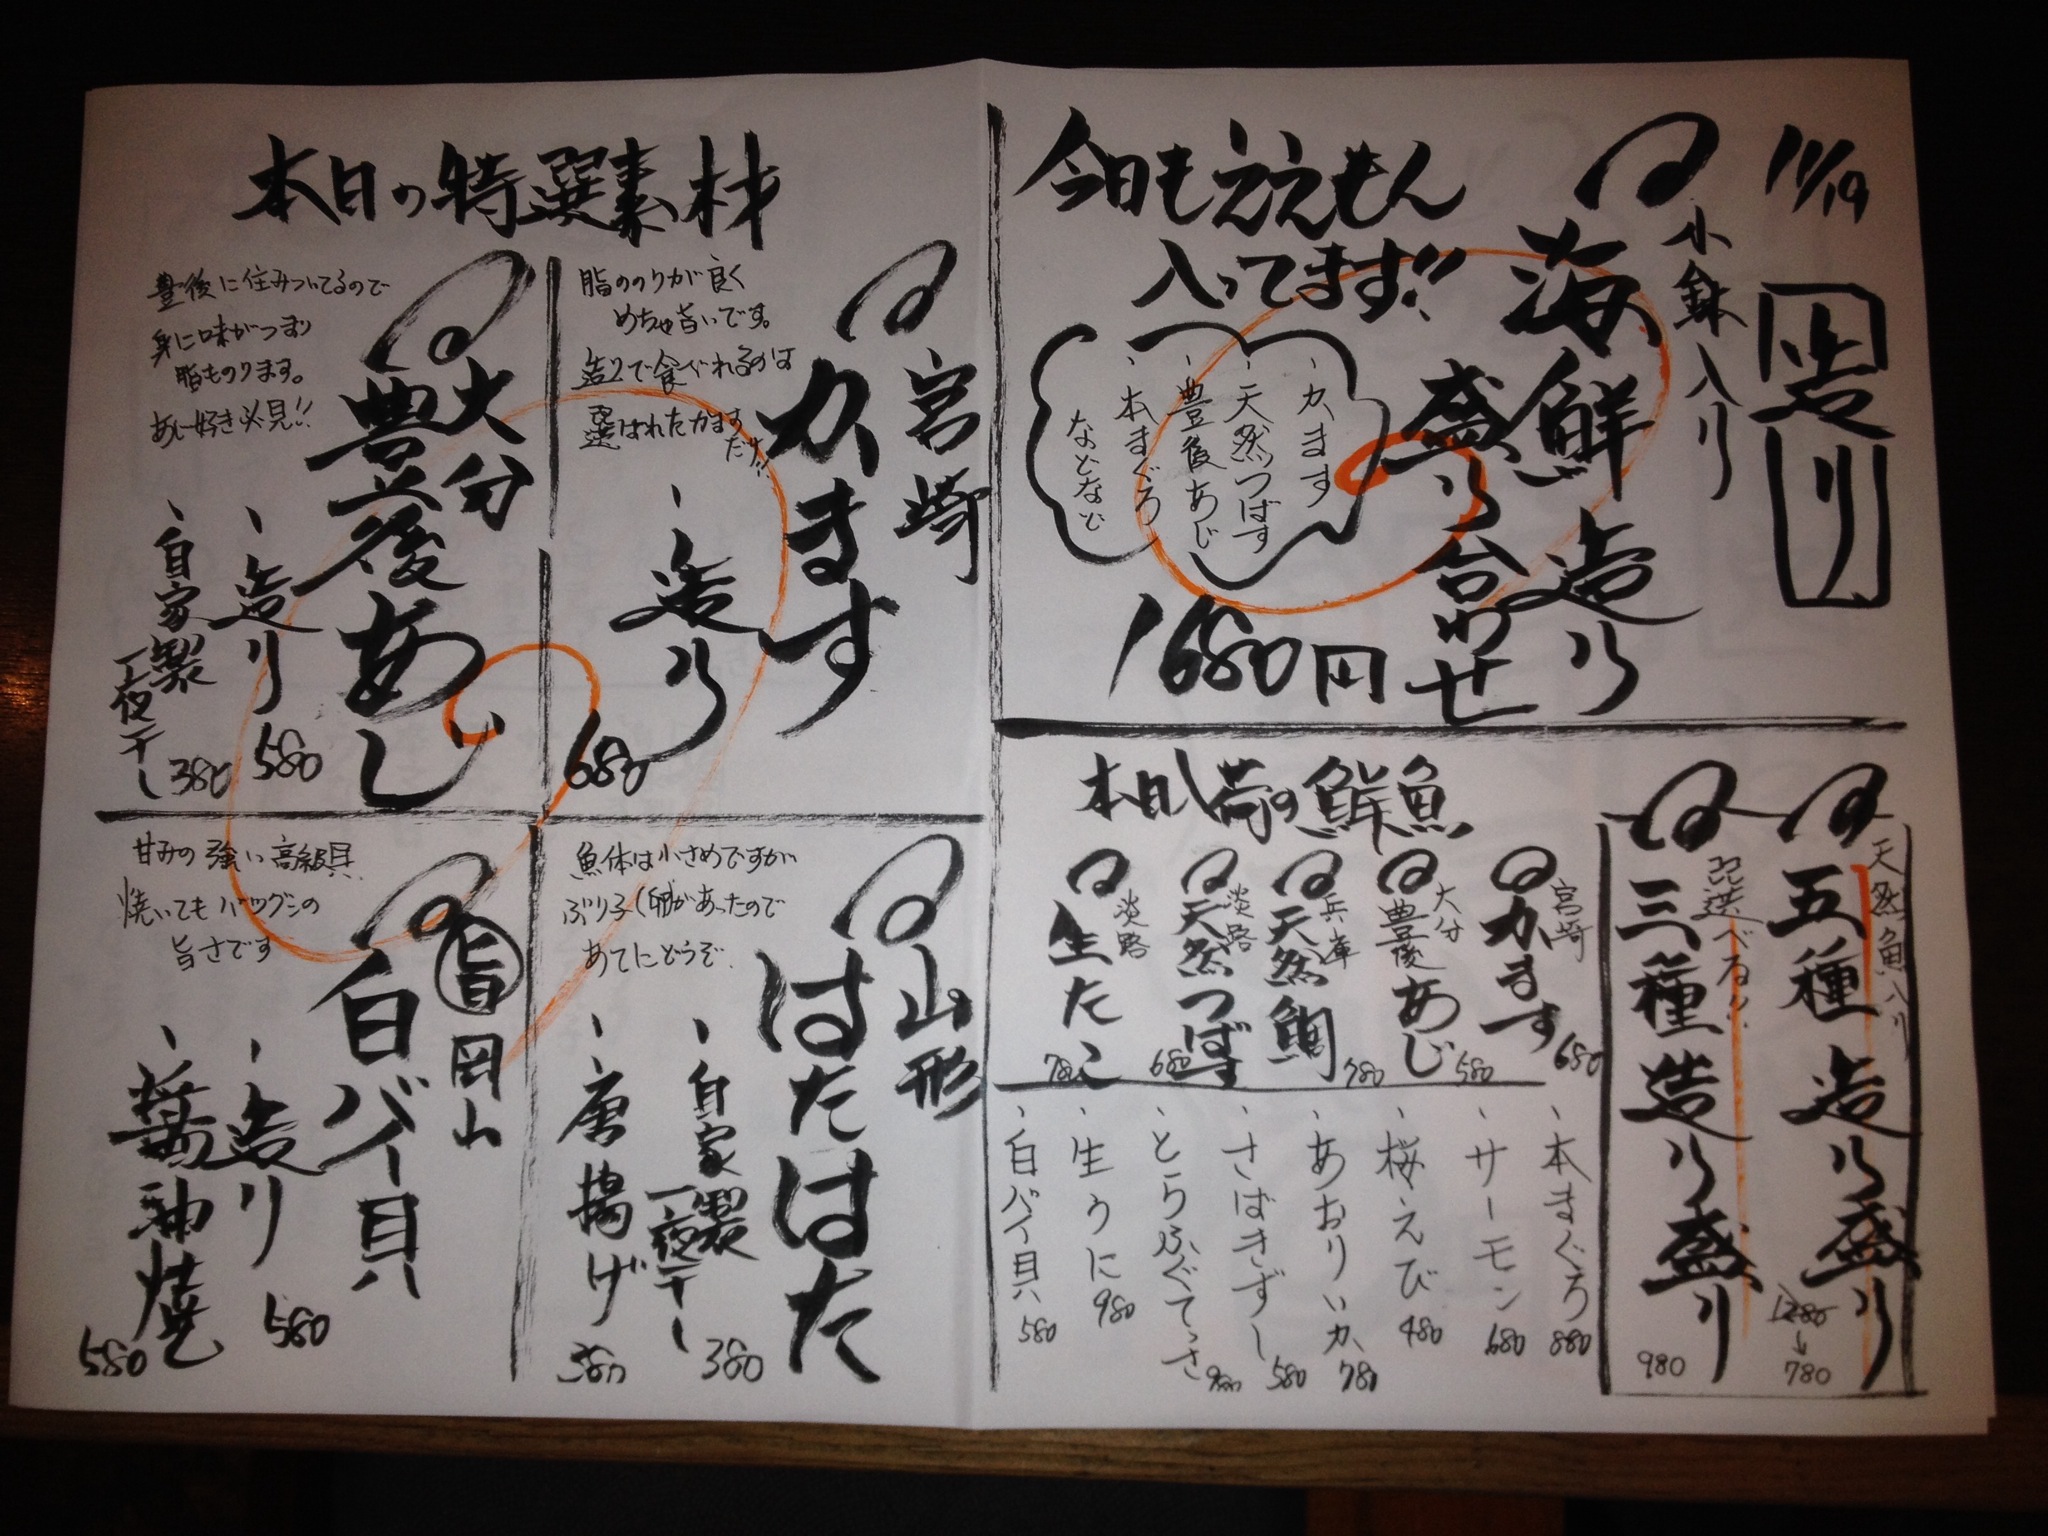 11/19
造り
小鉢入り
海鮮造り
盛り合わせ
今日もええもん
入ってます!!
、かます
、天然つばす
、豊後あじ
、本まぐろ
などなど
1680円
天然魚入り
五種造り盛り
1280
↓
780
三種造り盛り
980
本日入荷の鮮魚
宮崎
かます
680
大分
豊後あじ
580
兵庫
天然鯛
780
淡路
天然つばす
680
淡路
生たこ
780
、本まぐろ
880
、サーモン
680
、桜えび
480
、あおりいか
780
、さばきずし
580
、とらふぐてっさ
、生うに
980
、白バイ貝
580
本日の特選素材
宮崎
かます
脂ののりが良く
めちゃ旨いです。
造りで食べれるのは
選ばれたかます
だけ!!
、造り
680
大分
豊後あじ
豊後に住みついてるので
身に味がつまり
脂ものります。
あじ好き必見!!
、造り
580
、自家製
一夜干し
380
山形
はたはた
魚体は小さめですが
ぶり子(卵)があったので
あてにどうぞ.
、自家製
一夜干し
380
、唐揚げ
380
旨
岡山
白バイ貝
甘みの強い高級貝
焼いてもバツグンの
旨さです
、造り
580
、醤油焼
580